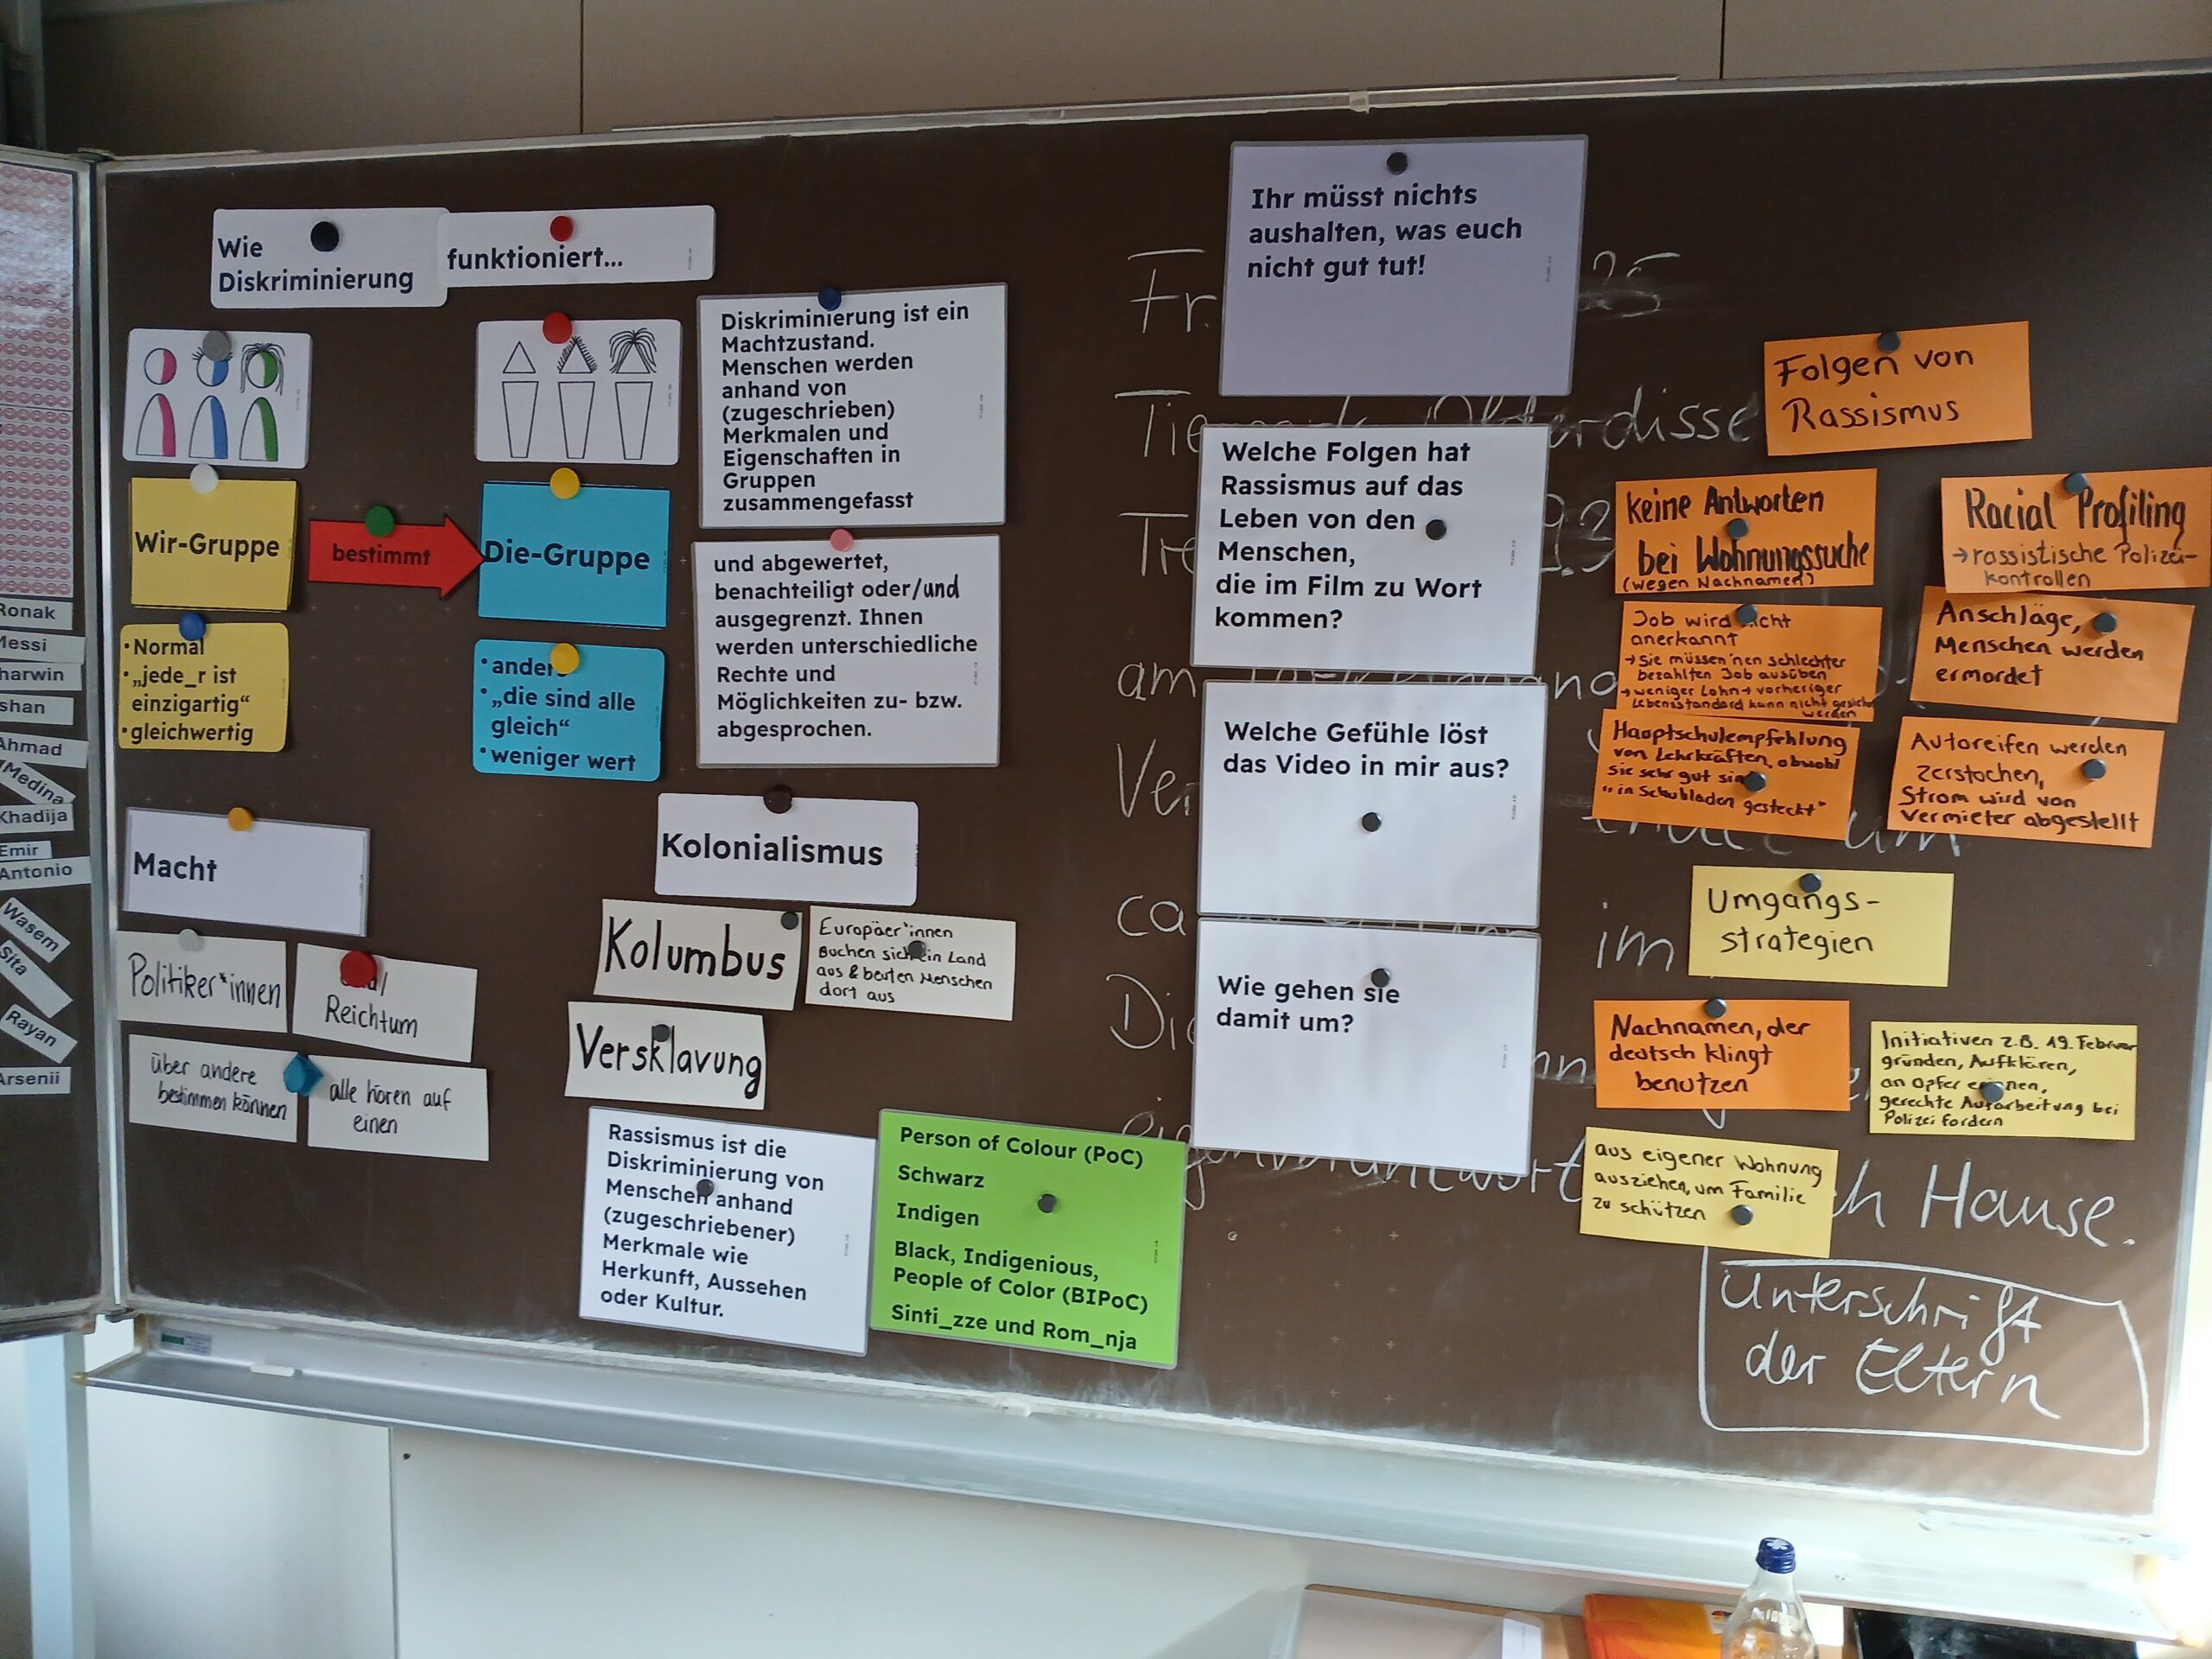 Wie
Diskriminierung
funktioniert...
Wir-Gruppe
bestimmt
Die-Gruppe
• Normal
• „jede_r ist
einzigartig“
• gleichwertig
• anders
• „die sind alle
gleich“
• weniger wert
Diskriminierung ist ein
Machtzustand.
Menschen werden
anhand von
(zugeschrieben)
Merkmalen und
Eigenschaften in
Gruppen
zusammengefasst
und abgewertet,
benachteiligt oder/und
ausgegrenzt. Ihnen
werden unterschiedliche
Rechte und
Möglichkeiten zu- bzw.
abgesprochen.
Macht
Politiker*innen
Reichtum
über andere
bestimmen können
alle hören auf
einen
Kolonialismus
Kolumbus
Europäer*innen
suchen sich ein Land
aus & beuten Menschen
dort aus
Versklavung
Rassismus ist die
Diskriminierung von
Menschen anhand
(zugeschriebener)
Merkmale wie
Herkunft, Aussehen
oder Kultur.
Person of Colour (PoC)
Schwarz
Indigen
Black, Indigenious,
People of Color (BIPoC)
Sinti_zze und Rom_nja
Ihr müsst nichts
aushalten, was euch
nicht gut tut!
Welche Folgen hat
Rassismus auf das
Leben von den
Menschen,
die im Film zu Wort
kommen?
Welche Gefühle löst
das Video in mir aus?
Wie gehen sie
damit um?
Folgen von
Rassismus
keine Antworten
bei Wohnungssuche
(wegen Nachnamen)
Racial Profiling
→ rassistische Polizei-
kontrollen
Job wird nicht
anerkannt
→ Sie müssen 'nen schlechter
bezahlten Job ausüben
→ weniger Lohn → vorheriger
Lebensstandard kann nicht
werden
Anschläge,
Menschen werden
ermordet
Hauptschulempfehlung
von Lehrkräften, obwohl
sie sehr gut sind
"in Schubladen gesteckt"
Autoreifen werden
zerstochen,
Strom wird von
Vermieter abgestellt
Umgangs-
strategien
Nachnamen, der
deutsch klingt
benutzen
Initiativen z.B. 19. Februar
gründen, Aufklären,
an Opfer erinnen,
gerechte Aufarbeitung bei
Polizei fordern
aus eigener Wohnung
ausziehen, um Familie
zu schützen
Fr. 25
am
ca im
Hause.
Unterschrift
der Eltern
Ronak
Messi
Ahmad
Medina
Khadija
Emir
Antonio
Wasem
Sita
Rayan
Arsenii